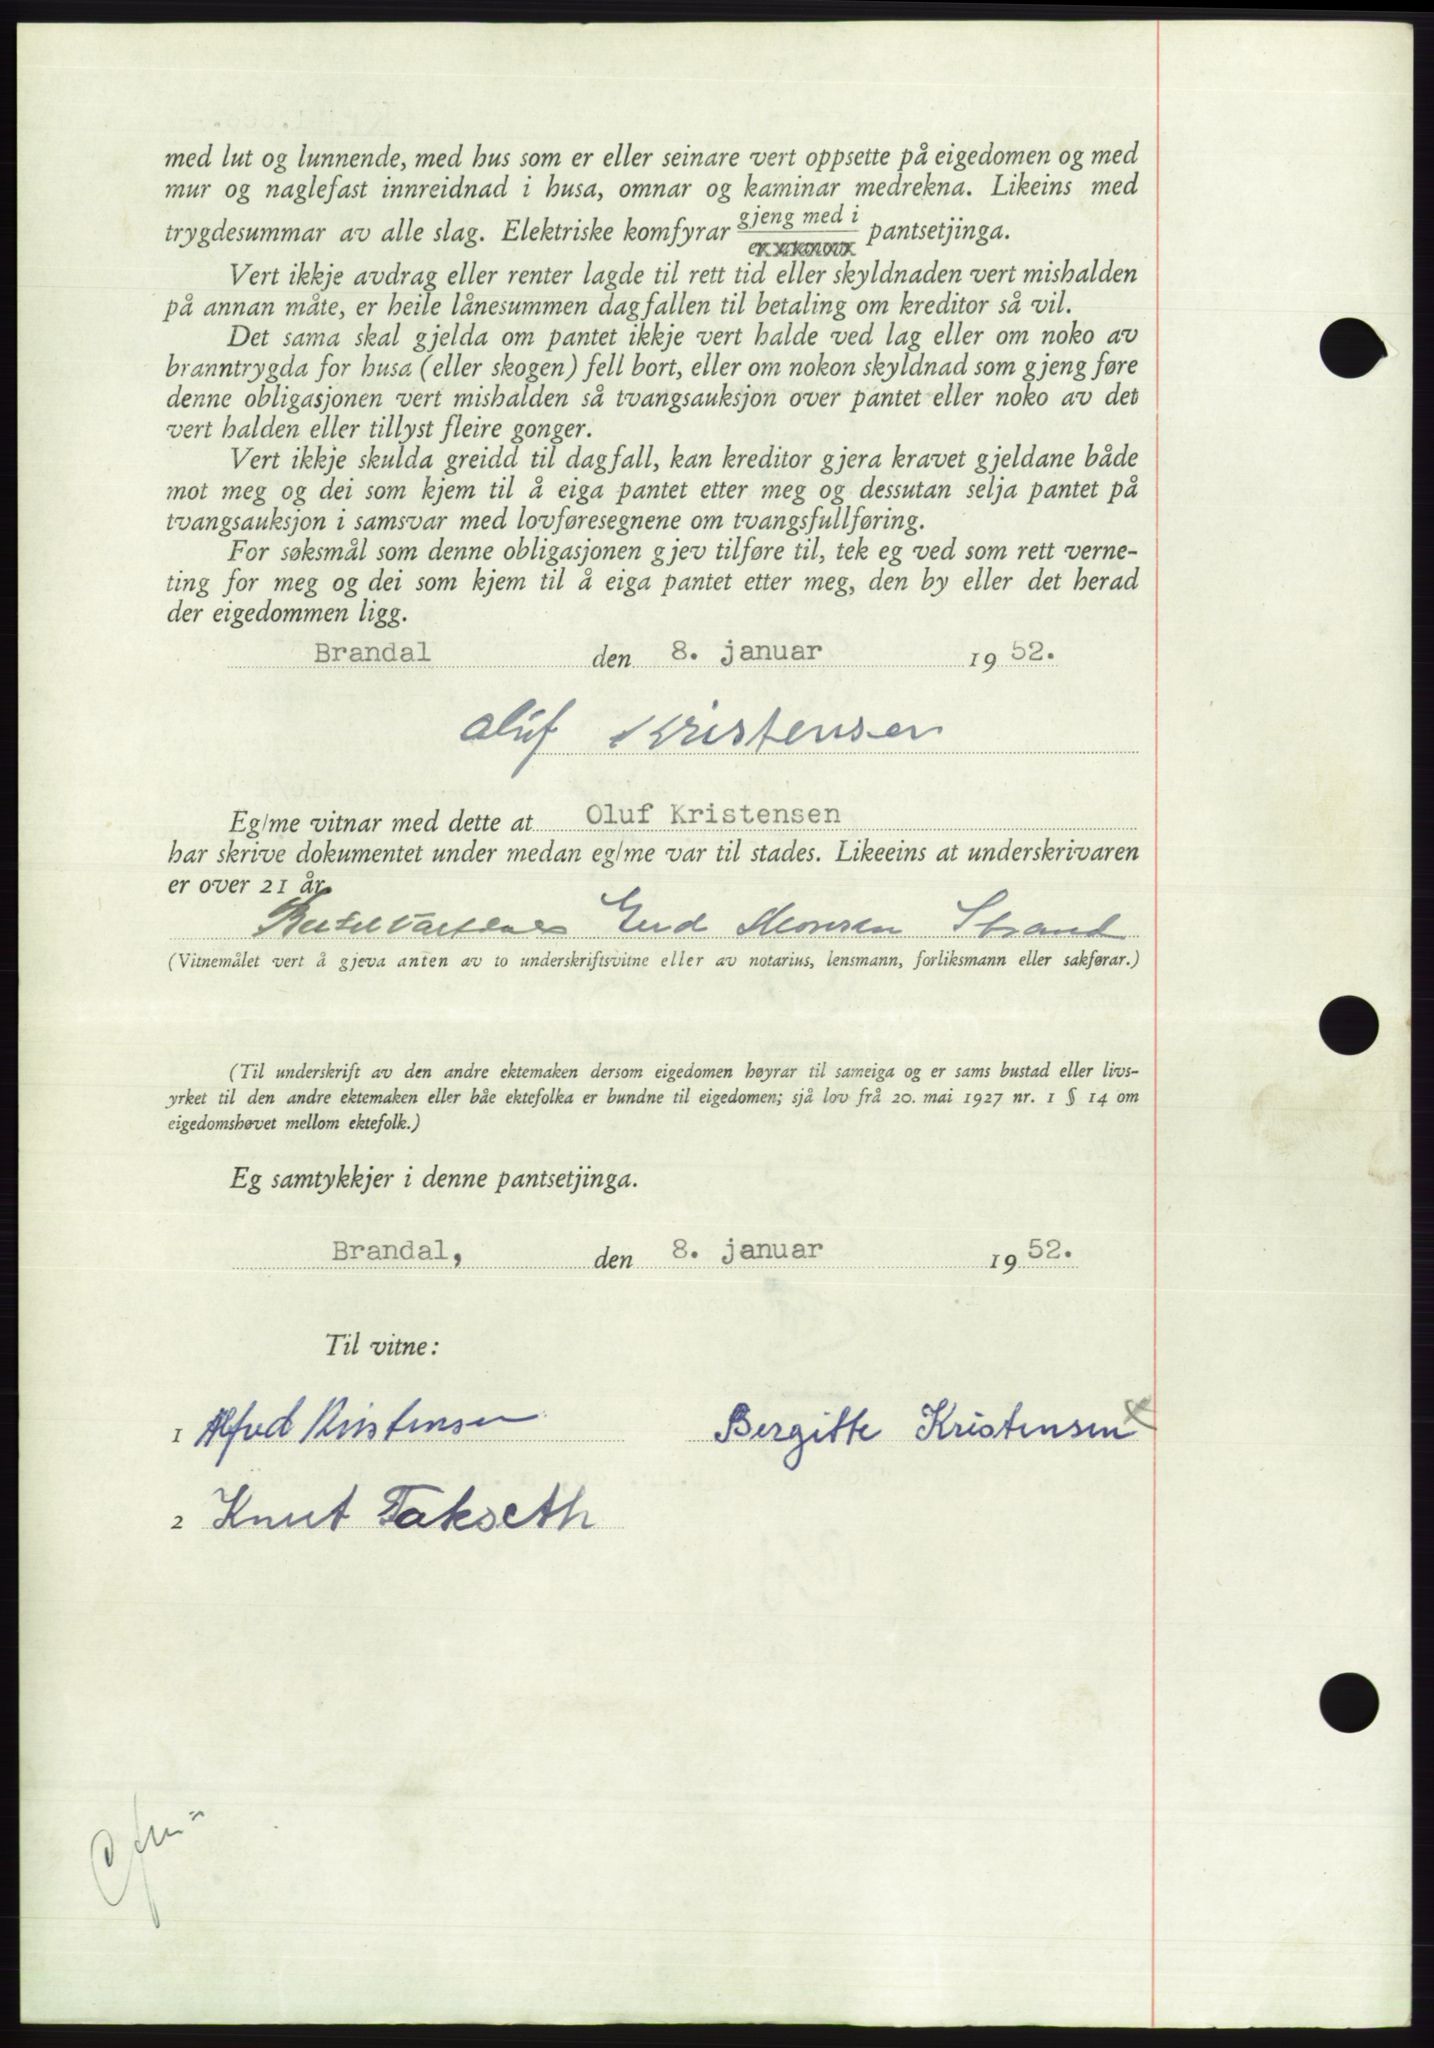 med lut og lunnende, med hus som er eller seinare vert oppsette på eigedomen og med
mur og naglefast innreidnad i husa, omnar og kaminar medrekna. Likeins med
trygdesummar av alle slag. Elektriske komfyrar gjeng med i pantsetjinga.
Vert ikkje avdrag eller renter lagde til rett tid eller skyldnaden vert mishalden
på annan måte, er heile lånesummen dagfallen til betaling om kreditor så vil.
Det sama skal gjelda om pantet ikkje vert halde ved lag eller om noko av
branntrygda for husa (eller skogen) fell bort, eller om nokon skyldnad som gjeng føre
denne obligasjonen vert mishalden så tvangsauksjon over pantet eller noko av det
vert halden eller tillyst fleire gonger.
Vert ikkje skulda greidd til dagfall, kan kreditor gjera kravet gjeldane både
mot meg og dei som kjem til å eiga pantet etter meg og dessutan selja pantet på
tvangsauksjon i samsvar med lovføresegnene om tvangsfullføring.
For søksmål som denne obligasjonen gjev tilføre til, tek eg ved som rett verne-
ting for meg og dei som kjem til å eiga pantet etter meg, den by eller det herad
der eigedommen ligg.
Brandal den 8. januar 19 52.
Oluf Kristensen
Eg/me vitnar med dette at Oluf Kristensen
har skrive dokumentet under medan eg/me var til stades. Likeeins at underskrivaren
er over 21 år.
Monsen Strand
(Vitnemålet vert å gjeva anten av to underskriftsvitne eller av notarius, lensmann, forliksmann eller sakførar.)
(Til underskrift av den andre ektemaken dersom eigedomen høyrar til sameiga og er sams bustad eller livs-
yrket til den andre ektemaken eller båe ektefolka er bundne til eigedomen; sjå lov frå 20. mai 1927 nr. 1 § 14 om
eigedomshøvet mellom ektefolk.)
Eg samtykkjer i denne pantsetjinga.
Brandal, den 8. januar 19 52.
Til vitne:
1 Alfred Kristensen Bergitte Kristensen x
2 Knut Takseth